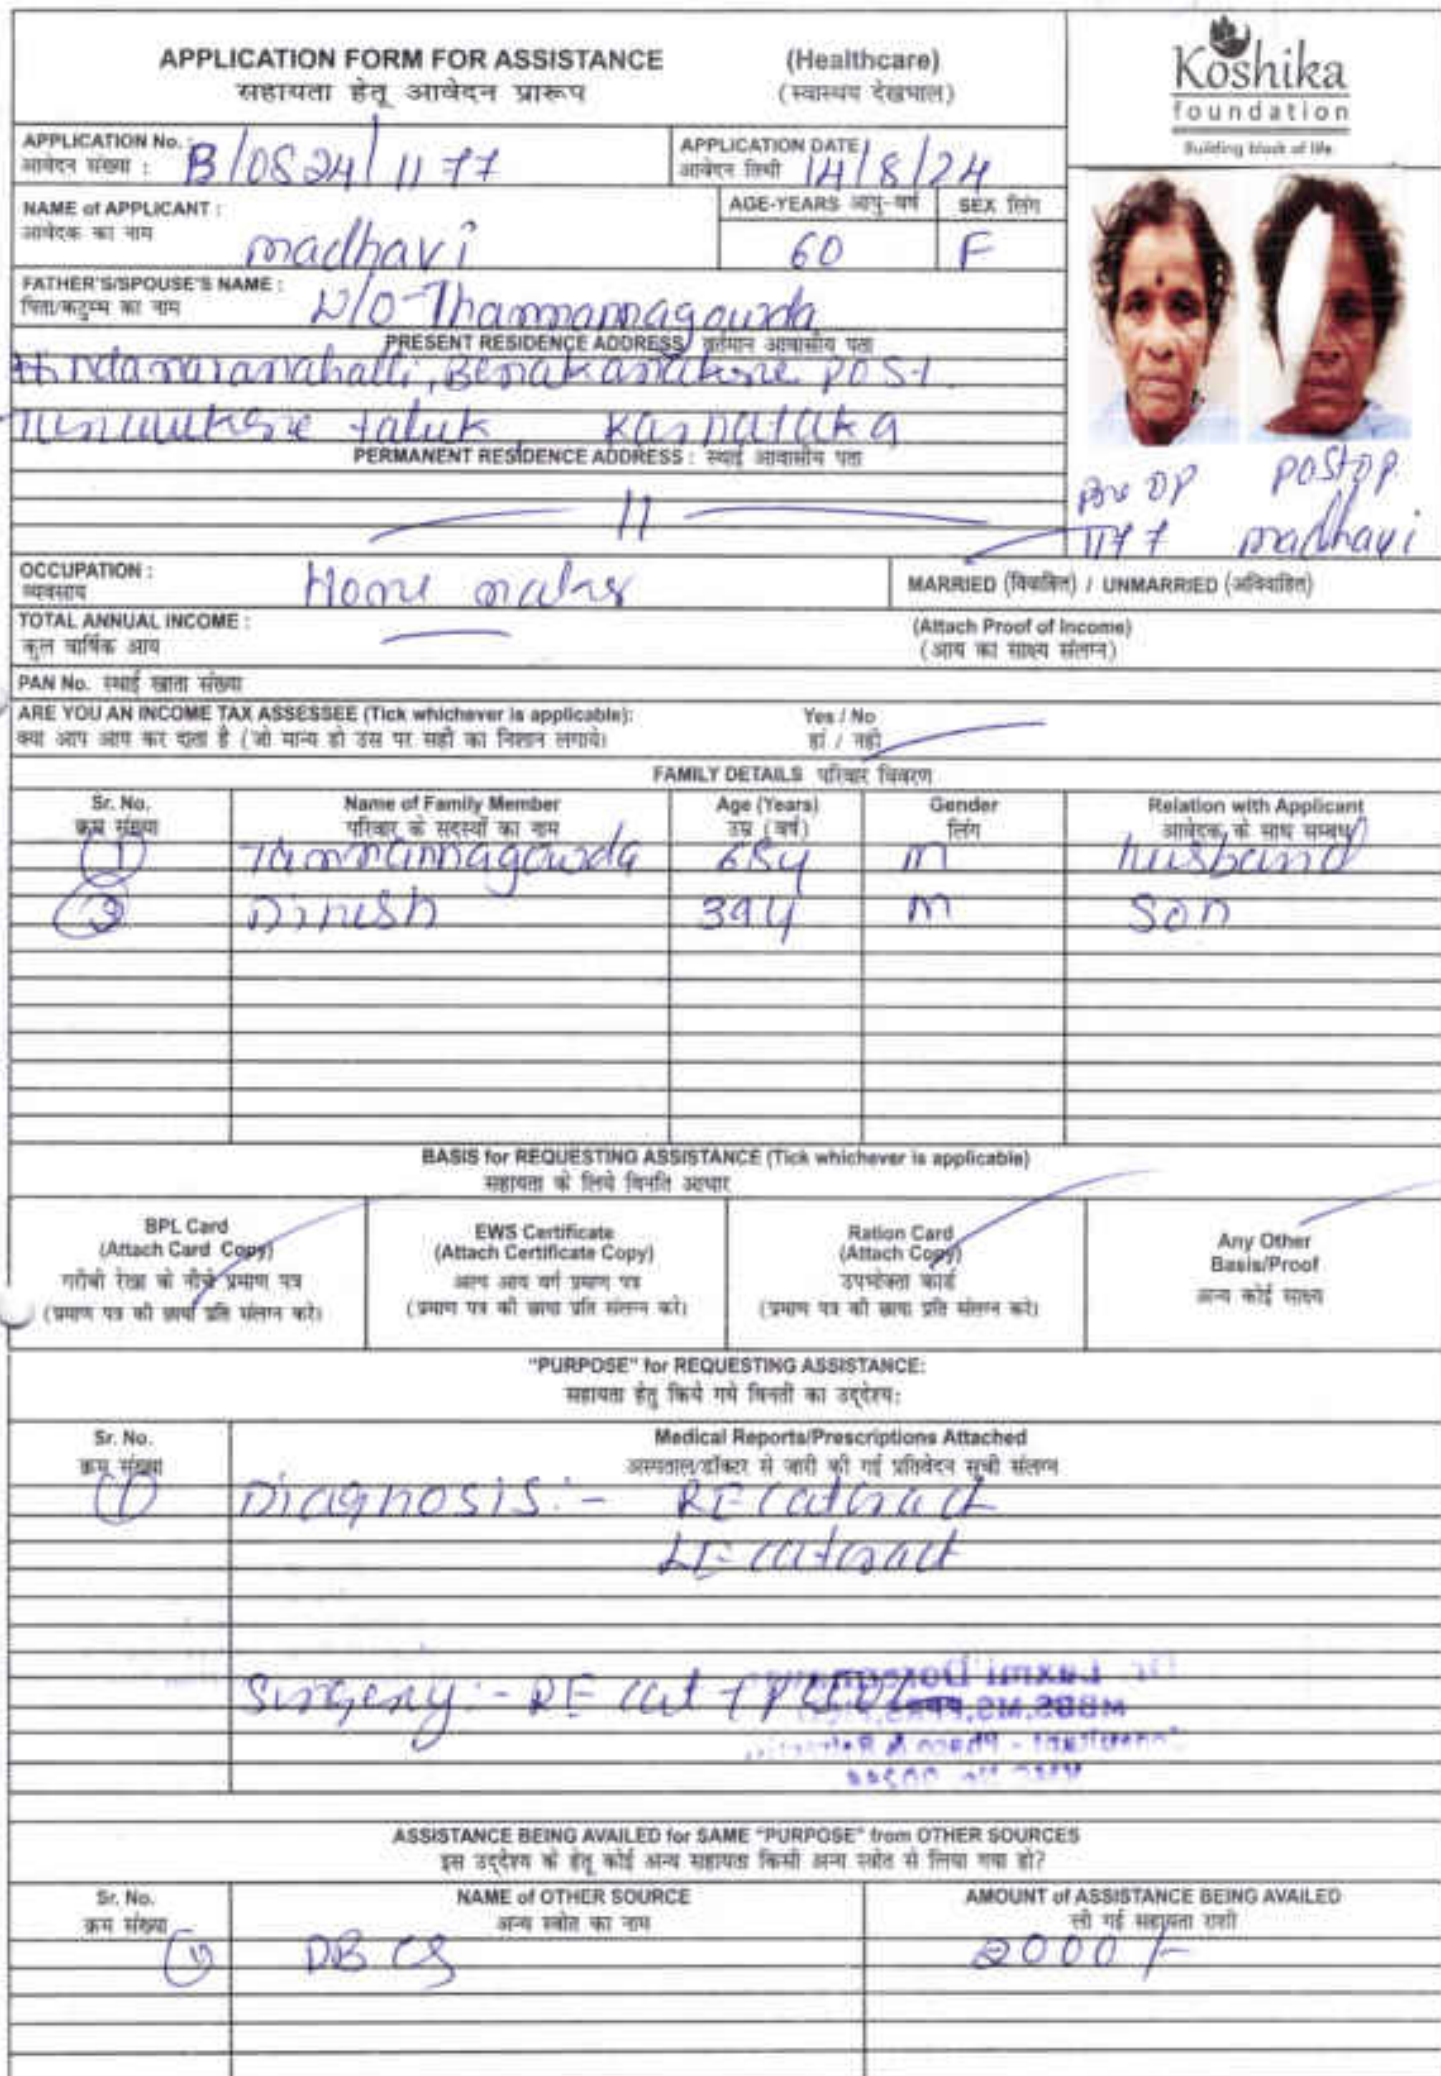 APPLICATION FORM FOR ASSISTANCE (Healthcare)
सहायता हेतू आवेदन प्रारूप (स्वास्थय देखभाल)
Koshika
foundation
Building block of life
APPLICATION No. :
आवेदन संख्या : B/0824/1177
APPLICATION DATE
आवेदन तिथी 14/8/24
NAME of APPLICANT :
आवेदक का नाम madhavi
AGE-YEARS आयु-वर्ष 60
SEX लिंग F
FATHER'S/SPOUSE'S NAME :
पिता/कटुम्भ का नाम W/O-Thammannagowda
PRESENT RESIDENCE ADDRESS वर्तमान आवासीय पता
POST
taluk Karnataka
PERMANENT RESIDENCE ADDRESS : स्थाई आवासीय पता
11
Pre OP Postop
1177 madhavi
OCCUPATION :
व्यवसाय Home maker
MARRIED (विवाहित) / UNMARRIED (अविवाहित)
TOTAL ANNUAL INCOME :
कुल वार्षिक आय
(Attach Proof of Income)
(आय का साक्ष्य संलग्न)
PAN No. स्थाई खाता संख्या
ARE YOU AN INCOME TAX ASSESSEE (Tick whichever is applicable): Yes / No
क्या आप आय कर दाता है (जो मान्य हो उस पर सही का निशान लगाये) हां / नही
FAMILY DETAILS परिवार विवरण
Sr. No. Name of Family Member Age (Years) Gender Relation with Applicant
क्रम संख्या परिवार के सदस्यों का नाम उम्र (वर्ष) लिंग आवेदक के साथ सम्बंध
1 Tammannagowda 65y m husband
2 Dinesh 39y m Son
BASIS for REQUESTING ASSISTANCE (Tick whichever is applicable)
सहायता के लिये विनति आधार
BPL Card
(Attach Card Copy)
गरीबी रेखा के नीचे प्रमाण पत्र
(प्रमाण पत्र की छाया प्रति संलग्न करे)
EWS Certificate
(Attach Certificate Copy)
अल्प आय वर्ग प्रमाण पत्र
(प्रमाण पत्र की छाया प्रति संलग्न करे)
Ration Card
(Attach Copy)
उपभोक्ता कार्ड
(प्रमाण पत्र की छाया प्रति संलग्न करे)
Any Other
Basis/Proof
अन्य कोई साक्ष्य
"PURPOSE" for REQUESTING ASSISTANCE:
सहायता हेतु किये गये विनती का उद्देश्य:
Sr. No. Medical Reports/Prescriptions Attached
क्रम संख्या अस्पताल/डॉक्टर से जारी की गई प्रतिवेदन सूची संलग्न
1 Diagnosis:- RE cataract
LE cataract
Surgery:- RE cat + PCIOL
Dr. Laxmi
MBBS,MS,
Consultant - Phaco &
ASSISTANCE BEING AVAILED for SAME "PURPOSE" from OTHER SOURCES
इस उद्देश्य के हेतू कोई अन्य सहायता किसी अन्य स्त्रोत से लिया गया हो?
Sr. No. NAME of OTHER SOURCE AMOUNT of ASSISTANCE BEING AVAILED
क्रम संख्या अन्य स्त्रोत का नाम ली गई सहायता राशी
1 DBCS 2000/-